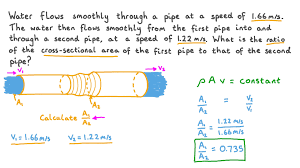 Water flows smoothly through a pipe at a speed of 1.66 m/s.
The water then flows smoothly from the first pipe into and
through a second pipe, at a speed of 1.22 m/s. What is the ratio
of the cross-sectional area of the first pipe to that of the second
pipe?
V₁
V₂
A₁
A₂
Calculate A₁/A₂
V₁ = 1.66 m/s V₂ = 1.22 m/s
ρ A v = constant
A₁/A₂ = V₂/V₁
A₁/A₂ = 1.22 m/s / 1.66 m/s
A₁/A₂ = 0.735